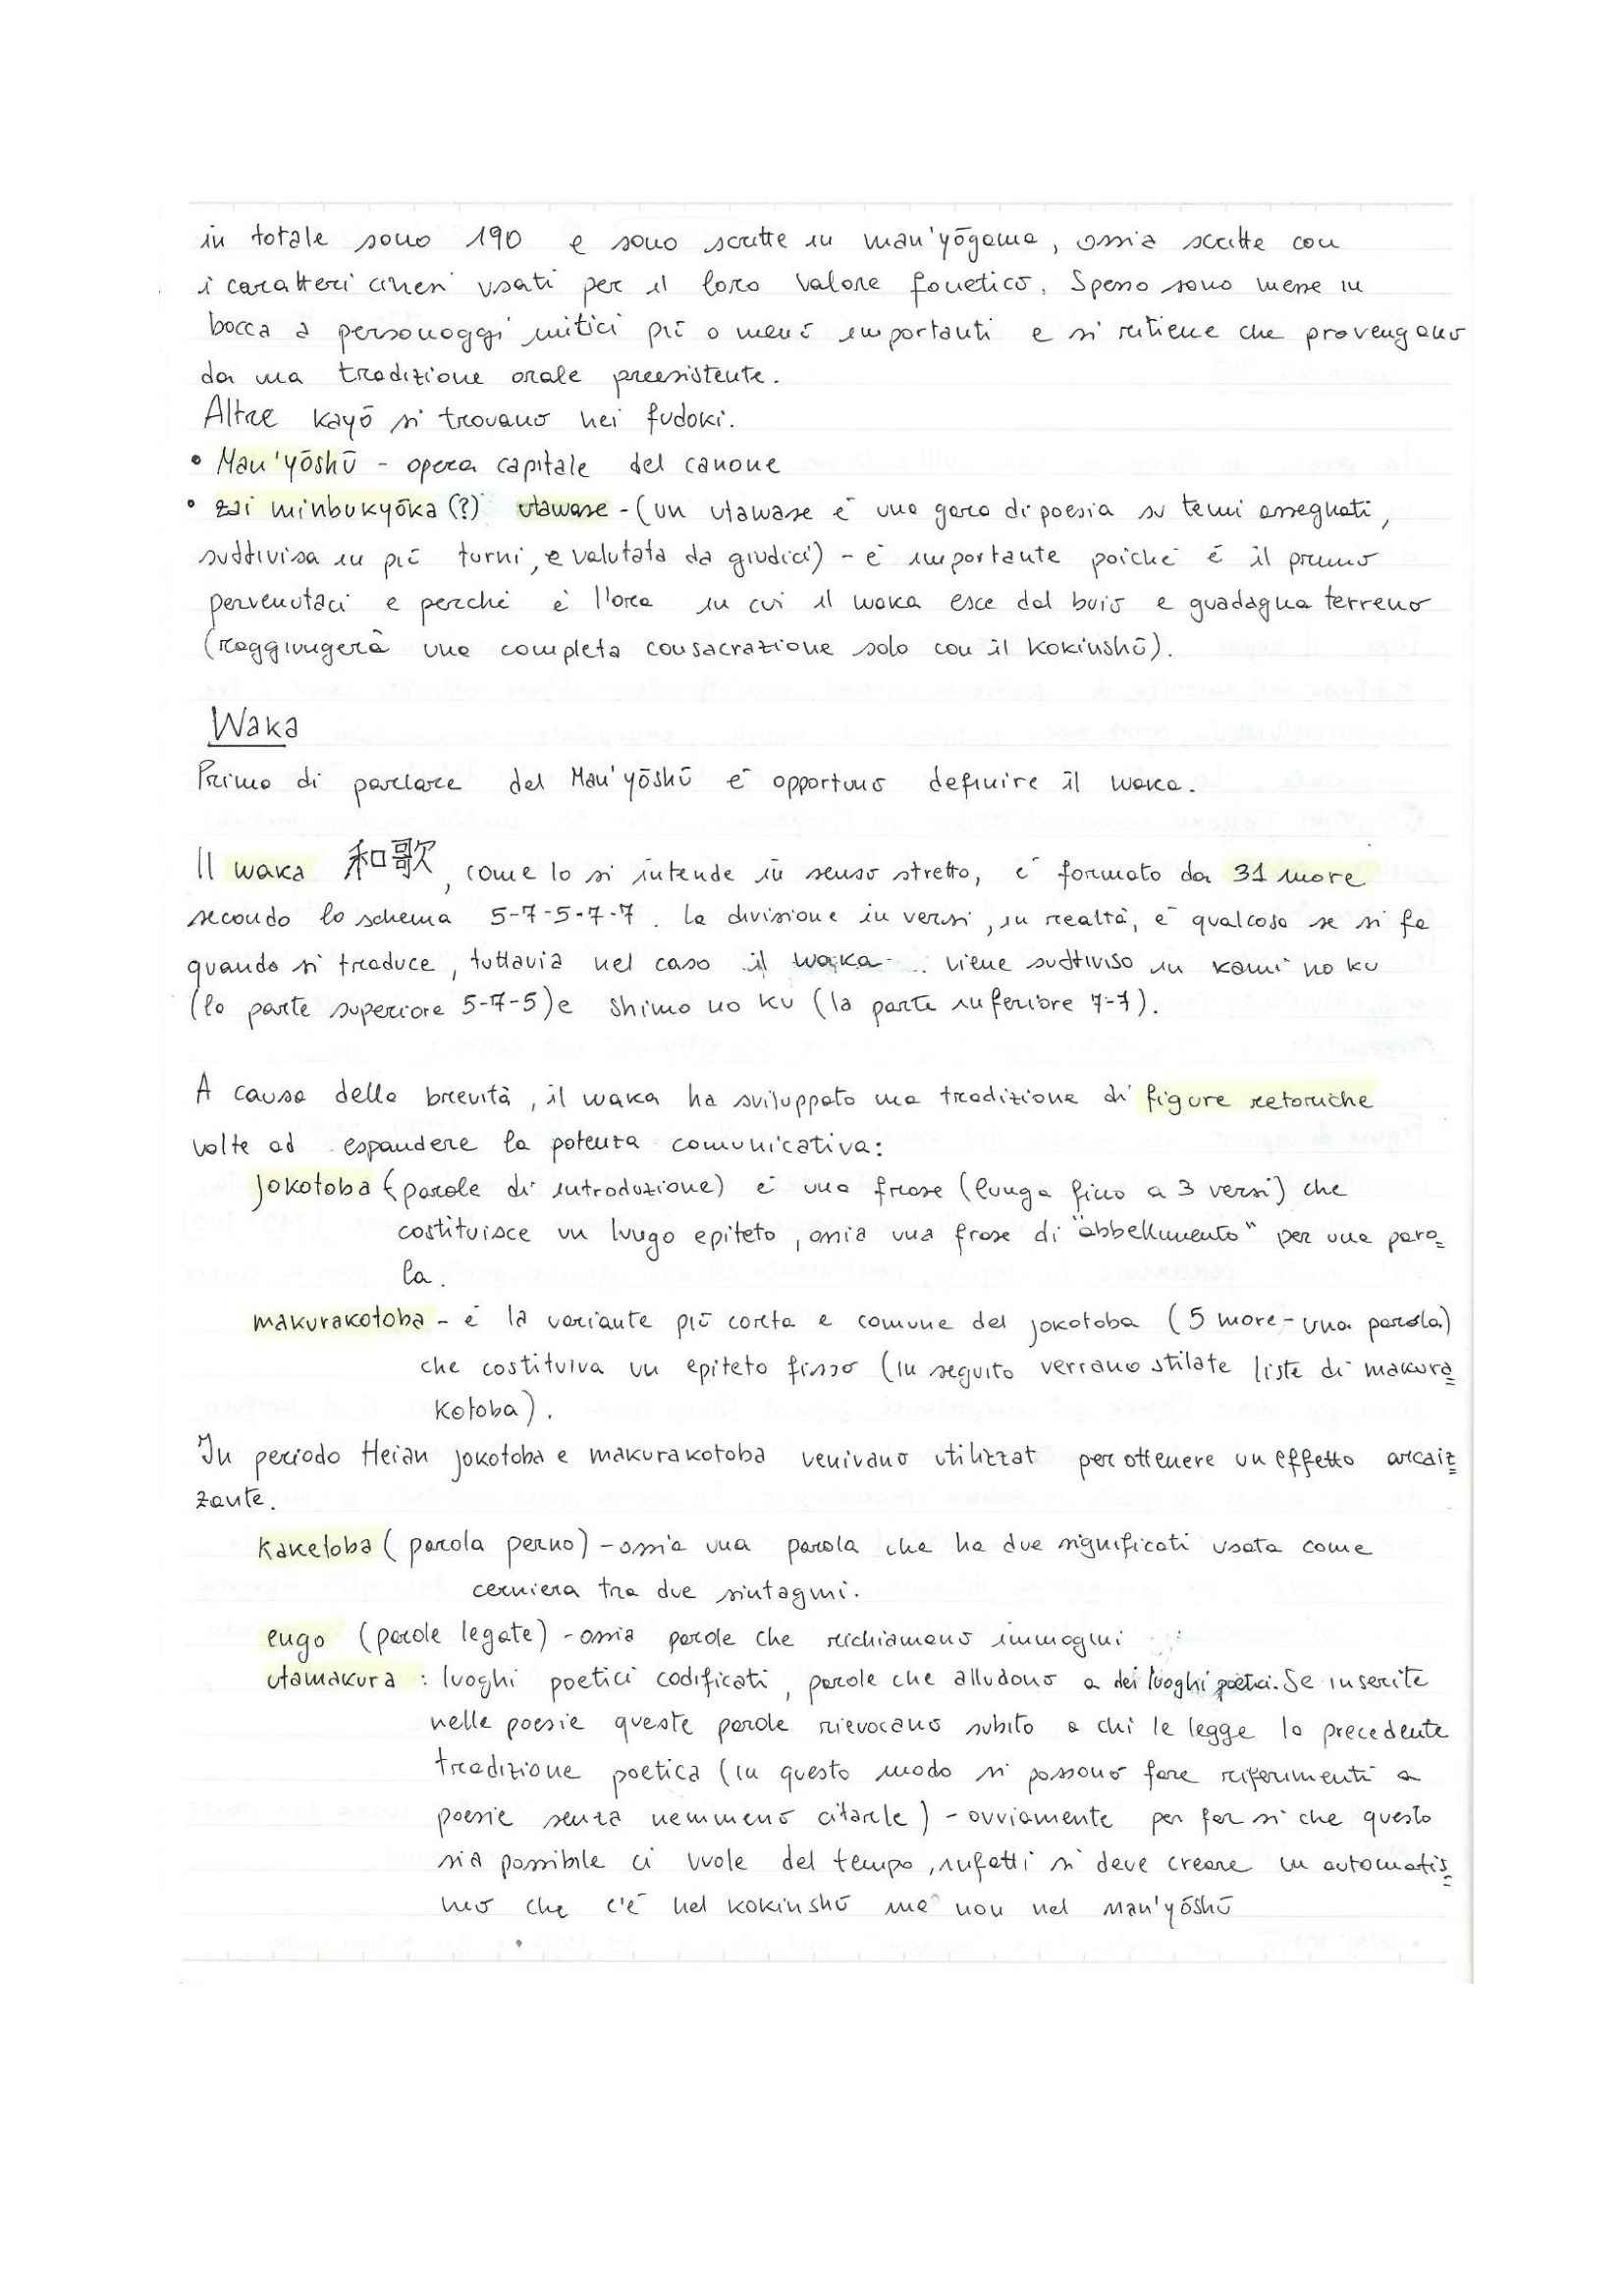 in totale sono 190 e sono scritte in man'yōgama, ossia scritte con
i caratteri cinesi usati per il loro valore fonetico. Spesso sono messe in
bocca a personaggi mitici più o meno importanti e si ritiene che provengano
da una tradizione orale preesistente.
Altre kayō si trovano nei fudoki.
• Man'yōshū - opera capitale del canone
• zai minbukyōka (?) utawase - (un utawase è una gara di poesia su temi assegnati,
suddivisa in più turni, e valutata da giudici) - è importante poiché è il primo
pervenutaci e perché è l'ora in cui il waka esce dal buio e guadagna terreno
(raggiungerà una completa consacrazione solo con il Kokinshū).
Waka
Prima di parlare del Man'yōshū è opportuno definire il waka.
Il waka 和歌, come lo si intende in senso stretto, è formato da 31 more
secondo lo schema 5-7-5-7-7. La divisione in versi, in realtà, è qualcosa se si fa
quando si traduce, tuttavia nel caso il waka viene suddiviso in kami no ku
(la parte superiore 5-7-5) e shimo no ku (la parte inferiore 7-7).
A causa della brevità, il waka ha sviluppato una tradizione di figure retoriche
volte ad espandere la potenza comunicativa:
jokotoba (parole di introduzione) è una frase (lunga fino a 3 versi) che
costituisce un lungo epiteto, ossia una frase di "abbellimento" per una paro=
la.
makurakotoba - è la variante più corta e comune del jokotoba (5 more - una parola)
che costituiva un epiteto fisso (in seguito verrano stilate liste di makura=
kotoba).
In periodo Heian jokotoba e makurakotoba venivano utilizzat per ottenere un effetto arcaiz=
zante.
Kaketoba (parola perno) - ossia una parola che ha due significati usata come
cerniera tra due sintagmi.
engo (parole legate) - ossia parole che richiamano immagini
utamakura : luoghi poetici codificati, parole che alludono a dei luoghi poetici. Se inserite
nelle poesie queste parole rievocano subito a chi le legge la precedente
tradizione poetica (in questo modo si possono fare riferimenti a
poesie senza nemmeno citarle) - ovviamente per far sì che questo
sia possibile ci vuole del tempo, infatti si deve creare un automatis=
mo che c'è nel kokinshū ma non nel Man'yōshū